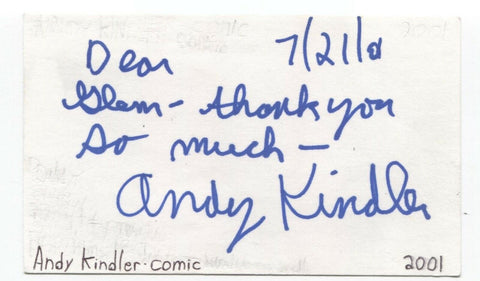 Dear 7/21/01
Glenn - thank you
So much -
Andy Kindler
Andy Kindler - comic 2001